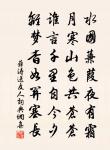 水國蒹葭夜有霜
月寒山色共蒼蒼
誰言千里自今夕
離夢杳如關塞長
薛濤送友人詞典網集